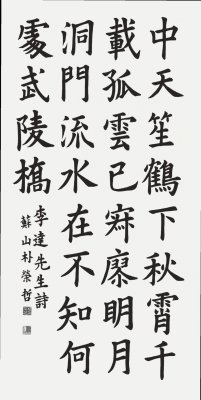 中天笙鶴下秋霄千
載孤雲已寂寥明月
洞門流水在不知何
處武陵橋
李達先生詩
蘇山朴榮哲